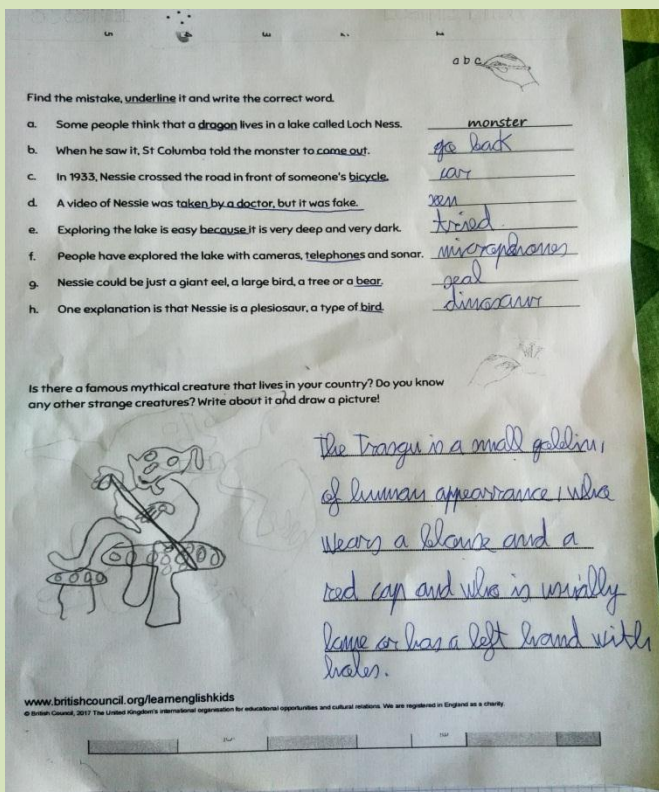 a b c
Find the mistake, underline it and write the correct word.
a. Some people think that a dragon lives in a lake called Loch Ness. monster
b. When he saw it, St Columba told the monster to come out. go back
c. In 1933, Nessie crossed the road in front of someone's bicycle. car
d. A video of Nessie was taken by a doctor, but it was fake.
e. Exploring the lake is easy because it is very deep and very dark. tried
f. People have explored the lake with cameras, telephones and sonar. microphones
g. Nessie could be just a giant eel, a large bird, a tree or a bear. seal
h. One explanation is that Nessie is a plesiosaur, a type of bird. dinosaur
Is there a famous mythical creature that lives in your country? Do you know
any other strange creatures? Write about it and draw a picture!
the Trasgu is a small goblin,
of human appearrance, who
wears a blouse and a
red cap and who is usually
lame or has a left hand with
holes.
www.britishcouncil.org/learnenglishkids
© British Council, 2017 The United Kingdom's international organisation for educational opportunities and cultural relations. We are registered in England as a charity.